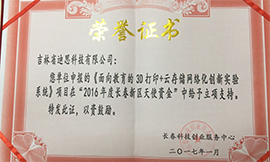 荣誉证书
吉林省迪思科技有限公司：
您单位申报的《面向教育的3D打印+云存储网络化创新实验
系统》项目在“2016年度长春新区天使资金”中给予立项支持。
特发此证，以资鼓励。
长春科技创业服务中心
二〇一七年一月